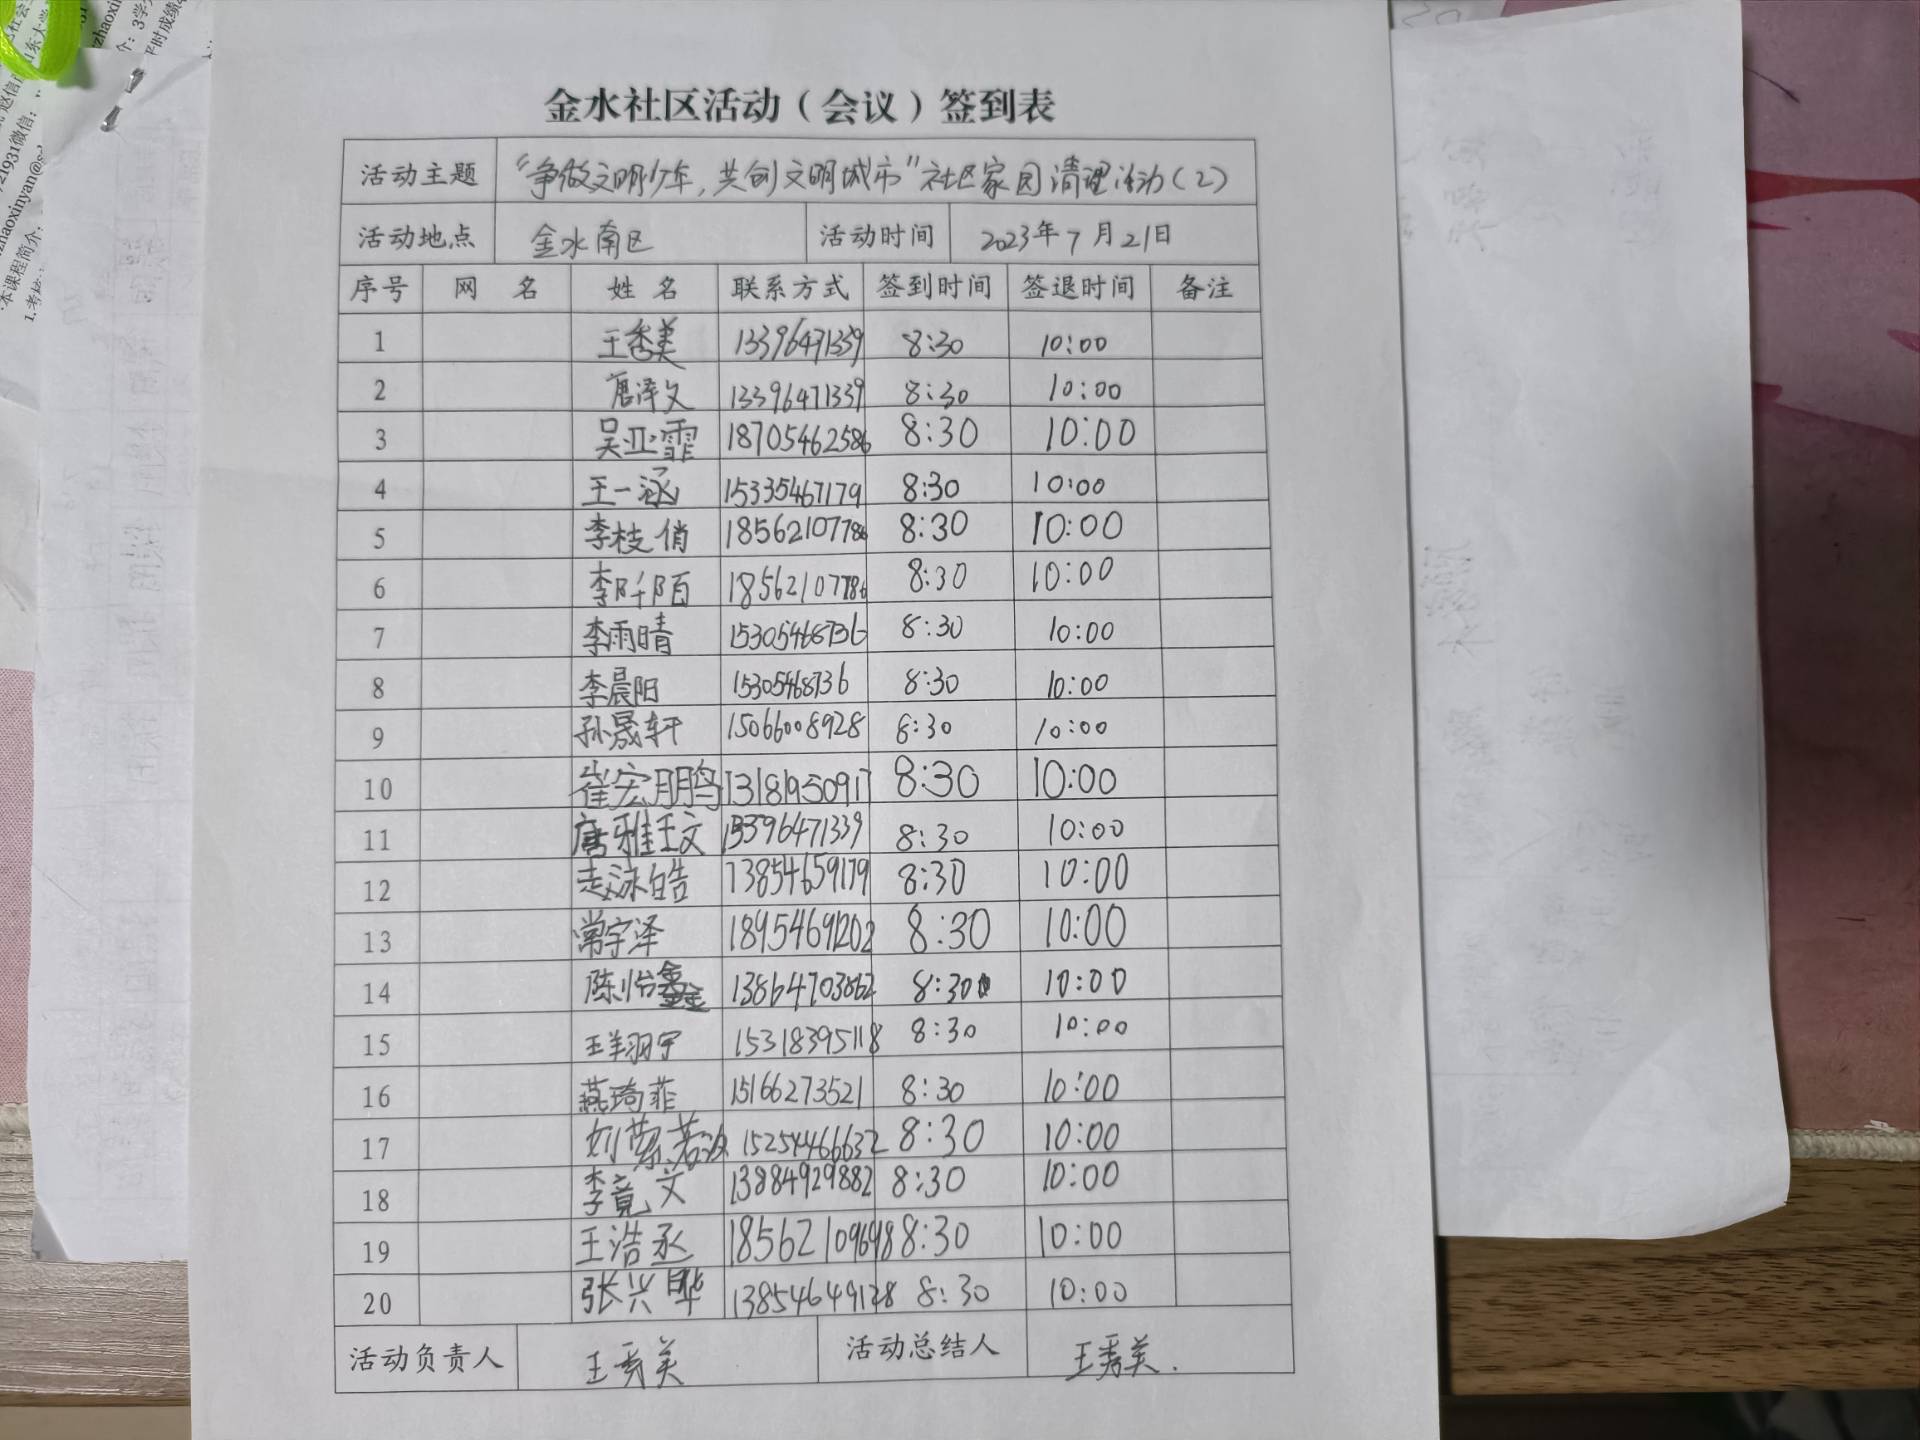 金水社区活动（会议）签到表
活动主题 “争做文明少年，共创文明城市”社区家园清理活动（2）
活动地点 金水南区 活动时间 2023年7月21日
序号 网名 姓名 联系方式 签到时间 签退时间 备注
1 王秀美 13396471339 8:30 10:00
2 唐泽文 13396471339 8:30 10:00
3 吴亚霏 18705462586 8:30 10:00
4 王一涵 15335467179 8:30 10:00
5 李枝俏 18562107786 8:30 10:00
6 李阡陌 18562107786 8:30 10:00
7 李雨晴 15305468736 8:30 10:00
8 李晨阳 15305468736 8:30 10:00
9 孙晟轩 15066008928 8:30 10:00
10 崔宏鹏 13181950917 8:30 10:00
11 唐雅文 13396471339 8:30 10:00
12 13854659179 8:30 10:00
13 常宇泽 18954691202 8:30 10:00
14 陈怡鑫 13864703862 8:30 10:00
15 王羽宇 15318395118 8:30 10:00
16 燕琦菲 15166273521 8:30 10:00
17 刘 若 15254466632 8:30 10:00
18 李竟文 13884929882 8:30 10:00
19 王浩丞 18562109698 8:30 10:00
20 张兴晔 13854649128 8:30 10:00
活动负责人 王秀美 活动总结人 王秀美.